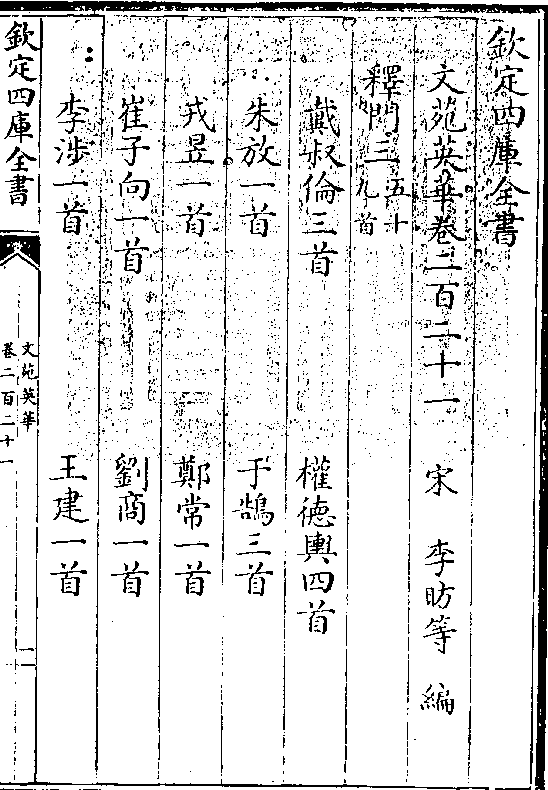 欽定四庫全書
文苑英華卷二百二十一 宋 李昉等 編
釋門三五十九首
戴叔倫三首 權德輿四首
朱放一首 于鵠三首
戎昱一首 鄭常一首
崔子向一首 劉商一首
李涉一首 王建一首
欽定四庫全書
文苑英華
卷二百二十一